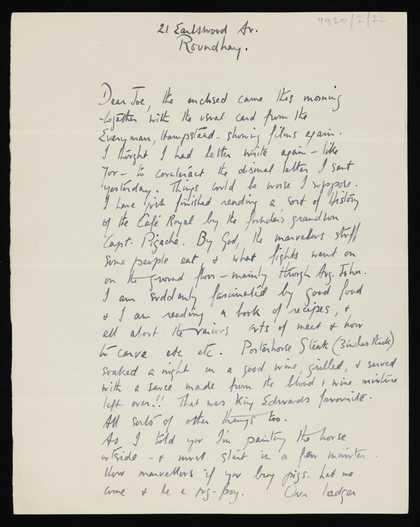 21 Earlswood Av.
Roundhay.
Dear Joe, the enclosed came this morning
together with the usual card from the
Everyman, Hampstead - showing films again.
I thought I had better write again - like
you - to counteract the dismal letter I sent
yesterday. Things could be worse I suppose.
I have just finished reading a sort of History
of the Café Royal by the founder's grandson
Capt. Pigache. By God, the marvellous stuff
some people eat & what fights went on
on the ground floor - mainly through Aug. John.
I am suddenly fascinated by good food
& I am reading a book of recipes, &
all about the various cuts of meat & how
to carve etc etc. Porterhouse Steak (3 inches thick)
soaked a night in a good wine, grilled, & served
with a sauce made from the blood & wine mixture
left over!! That was King Edwards favourite.
All sorts of other things too.
As I told you I'm painting the house
outside - & must start in a few minutes.
How marvellous if you buy pigs. Let me
come & be a pig-boy.